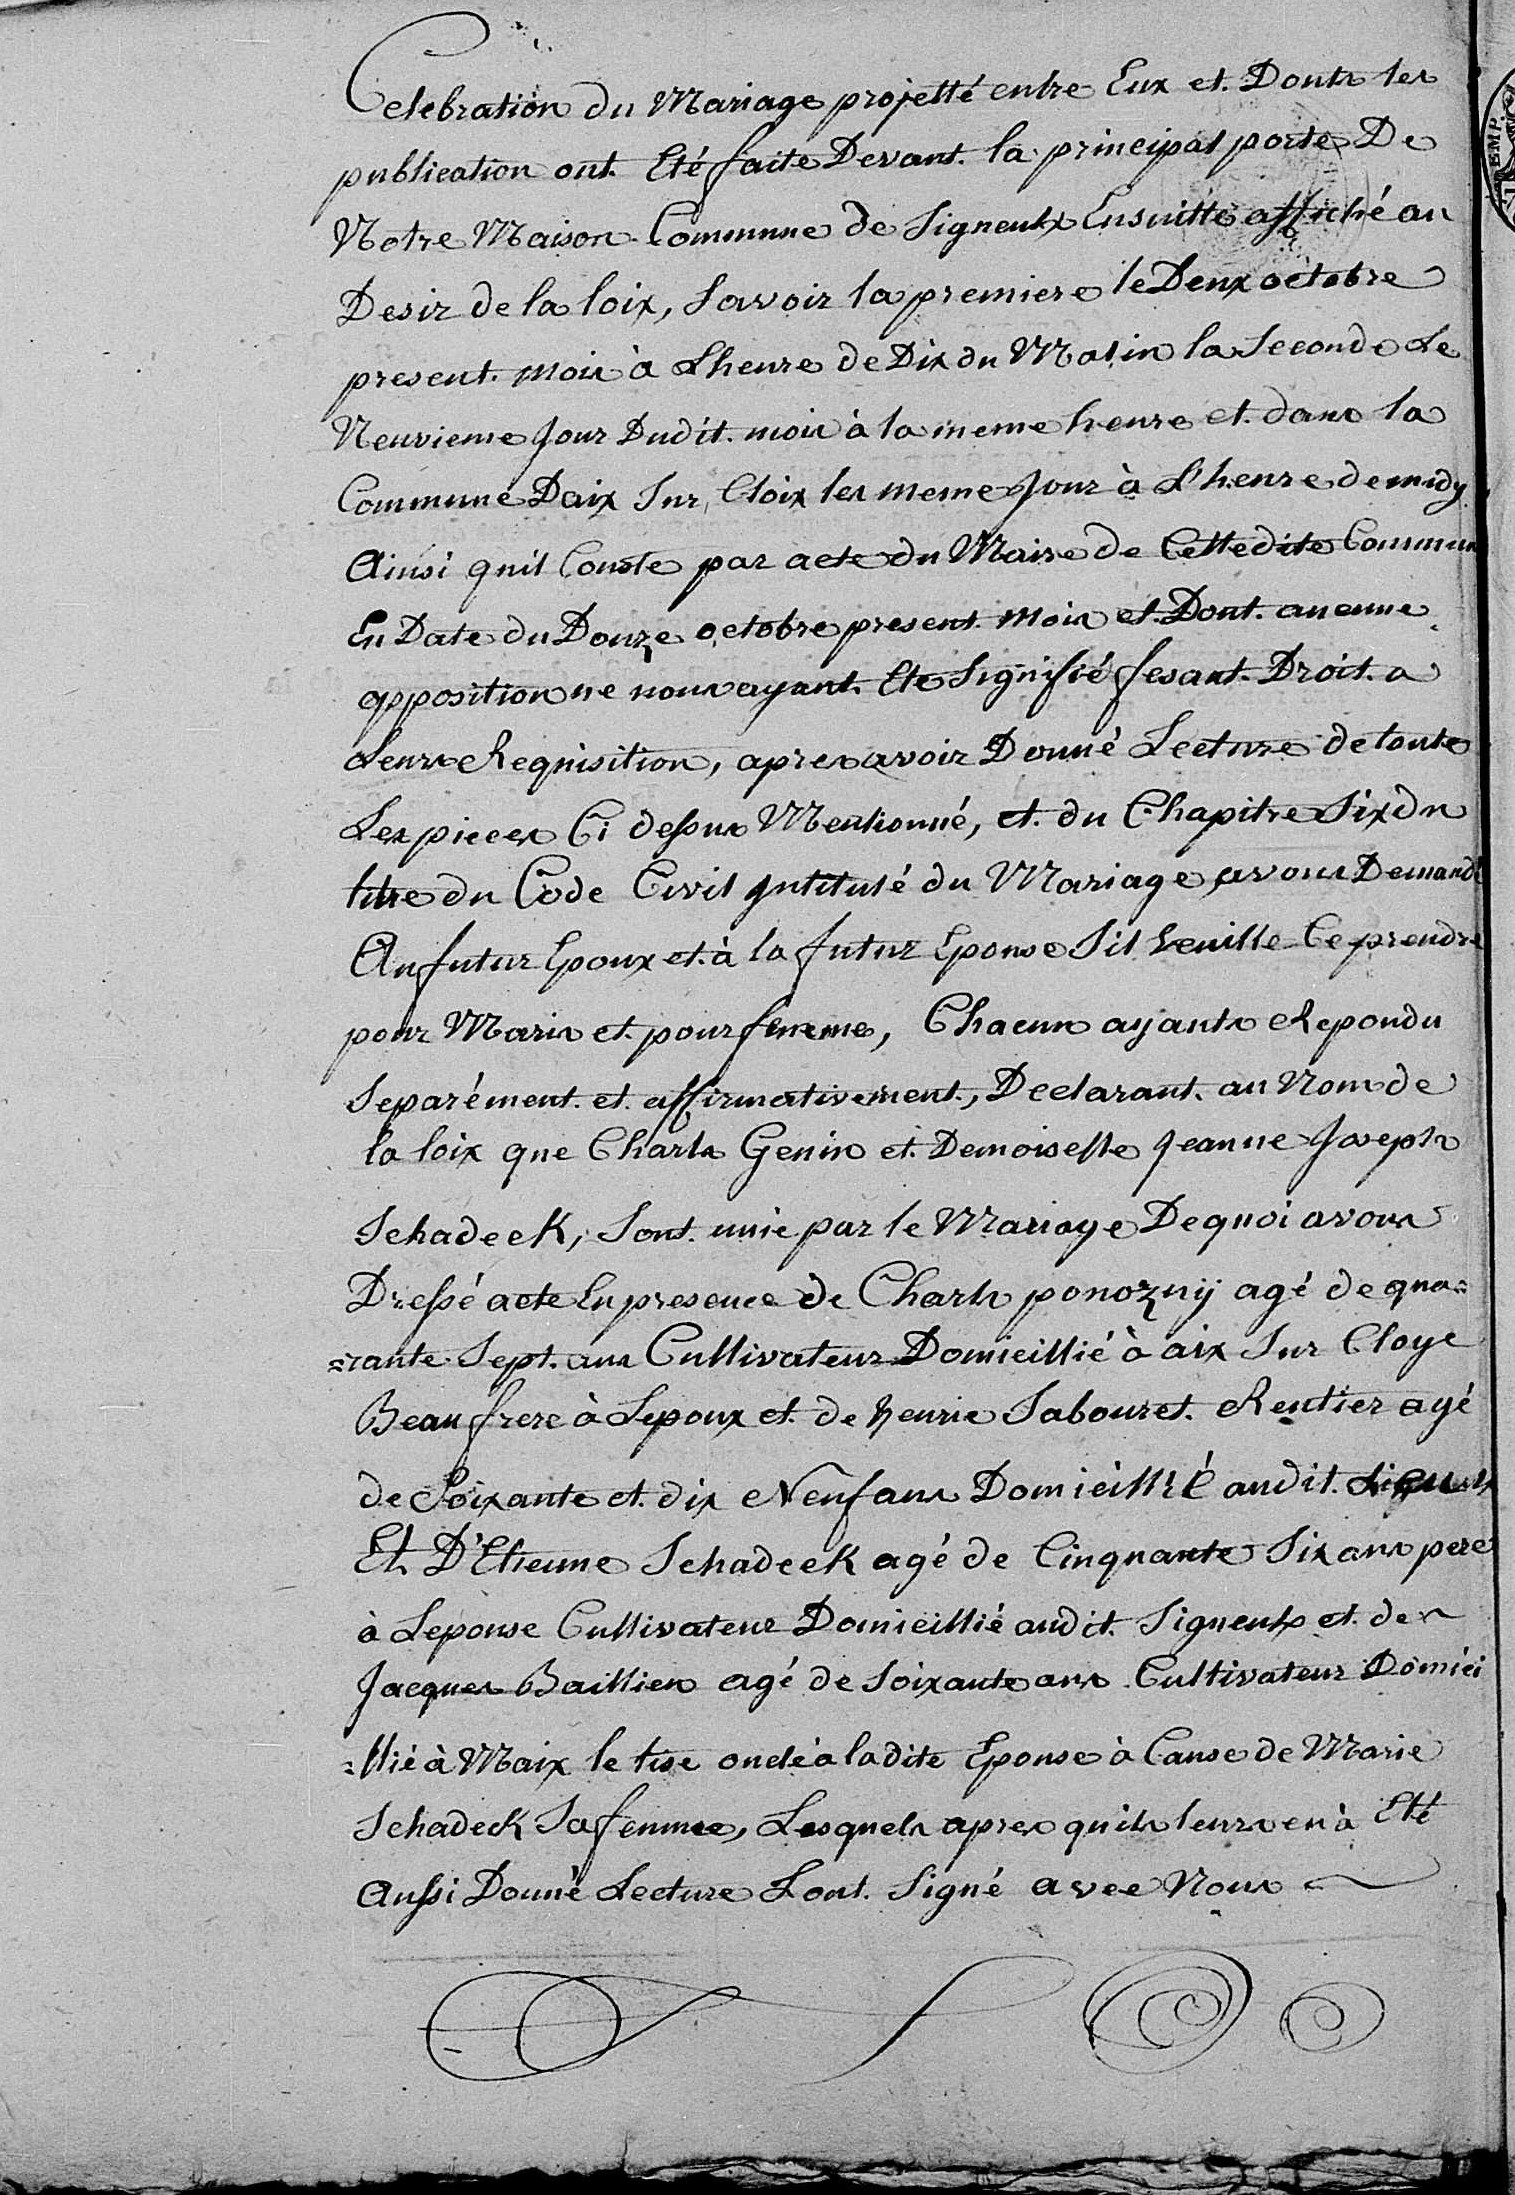 Celebration du Mariage projetté entre Eux et Donts les
publication ont Eté faite Devant la principal porte De
Notre Maison Commune de Signeulx Ensuitte affiché au
Desir de la loix, Savoir la premiere le Deux octobre
present mois à Lheure de Dix du Matin la Seconde Le
Neuvieme Jour Dudit mois à la meme heure et dans la
Commune Daix Sur Cloix les meme Jour à L'heure de midy
Ainsi quil Conste par acte du Maire de Cettedite Commun
En Date du Douze octobre present mois et Dont aucune
opposition ne nous ayant Ete Signifié fesant Droit a
Leurs Requisition, apres avoir Donné Lecture de toute
Les pieces Ci dessus Mentionné, et du Chapitre Six du
titre du Code Civil Intitulé du Mariage, avons Demandé
Au futur Epoux et à la futur Epouse Sil veuille Ce prendre
pour Maris et pour femme, Chacun ayants Repondu
Separément et affirmativement, Declarant au Nom de
la loix que Charls Genin et Demoiselle Jeanne Joseph
Schadeck, Sont unie par le Mariage De quoi avons
Dressé acte En presence de Charls ponozny agé de qua=
=rante Sept ans Cultivateur Domicillié à aix Sur Cloye
Beau frere à Lepoux et de henrie Sabouret Rentier agé
de Soixante et dix Neuf ans Domicillié audit Signeulx
Et D'Etienne Schadeck agé de Cinquante Six ans pere
à Lepouse Cultivateur Domicillié audit Signeulx et de
Jacques Baillieu agé de Soixante ans Cultivateur Domici
=llié à Maix le tise oncle à ladite Epouse à Cause de Marie
Schadeck Sa femme, Lesquels apres quils leurs en à Eté
Aussi Donné Lecture Lont Signé avec Nous
EMP.